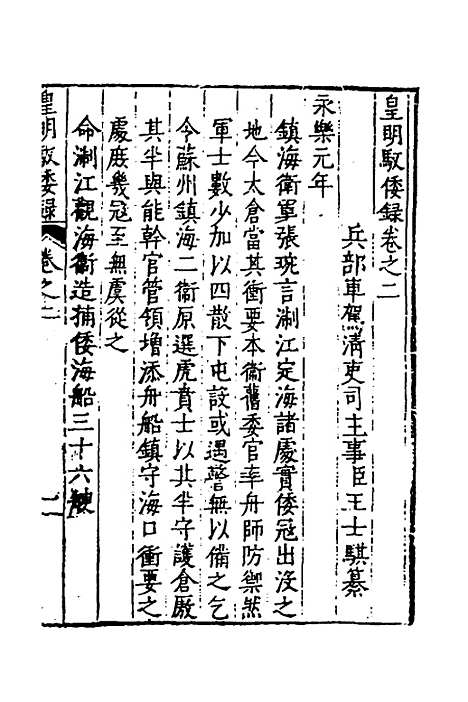 皇明馭倭錄卷之二
兵部車駕清吏司主事臣王士騏纂
永樂元年
鎮海衛軍張琬言浙江定海諸處實倭寇出沒之
地今太倉當其衝要本衛舊委官率舟師防禦然
軍士數少加以四散下屯設或遇警無以備之乞
令蘇州鎮海二衛原選虎賁士以其半守護倉厫
其半與能幹官管領增添舟船鎮守海口衝要之
處庶幾寇至無虞從之
命浙江觀海衛造捕倭海船三十六艘
皇明馭倭錄
卷之二
一